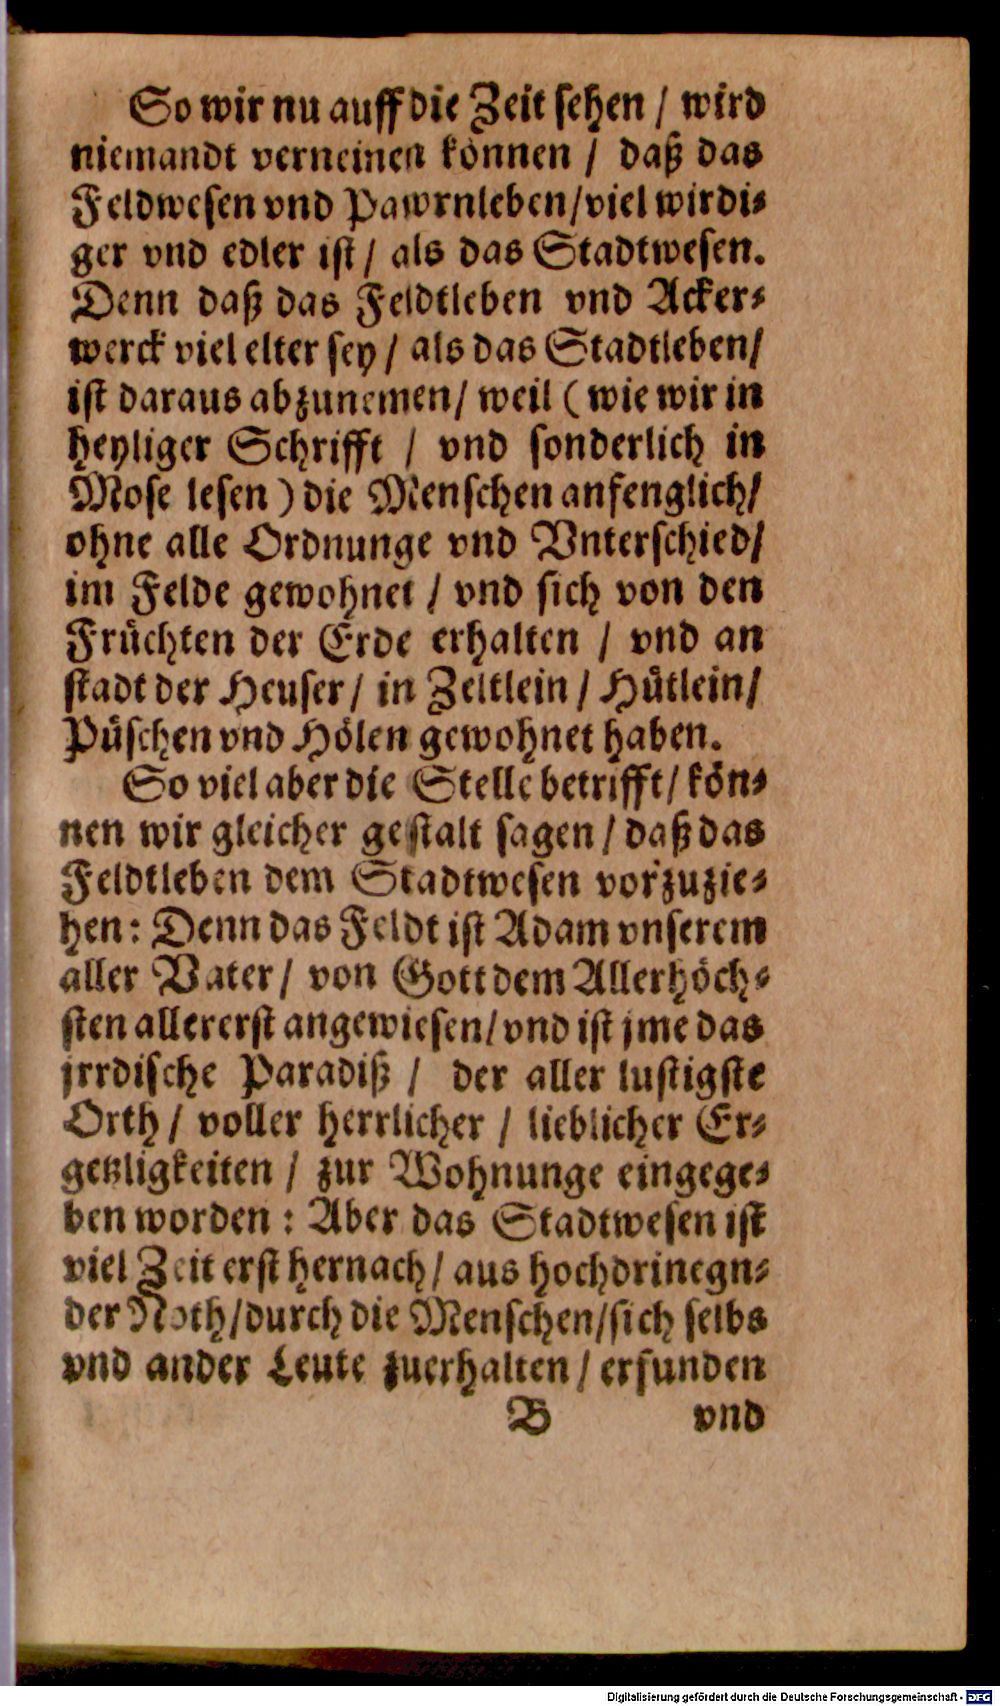 So wir nu auff die Zeit sehen / wird
niemandt verneinen können / daß das
Feldwesen vnd Pawrnleben/viel wirdi-
ger vnd edler ist / als das Stadtwesen.
Denn daß das Feldtleben vnd Acker-
werck viel elter sey / als das Stadtleben/
ist daraus abzunemen/ weil ( wie wir in
heyliger Schrifft / vnd sonderlich in
Mose lesen ) die Menschen anfenglich/
ohne alle Ordnunge vnd Vnterschied/
im Felde gewohnet / vnd sich von den
Früchten der Erde erhalten / vnd an
stadt der Heuser / in Zeltlein / Hütlein/
Püschen vnd Hölen gewohnet haben.
So viel aber die Stelle betrifft/ kön-
nen wir gleicher gestalt sagen / daß das
Feldtleben dem Stadtwesen vorzuzie-
hen : Denn das Feldt ist Adam vnserem
aller Vater / von Gott dem Allerhöch-
sten allererst angewiesen/ vnd ist jme das
jrrdische Paradiß / der aller lustigste
Orth / voller herrlicher / lieblicher Er-
getzligkeiten / zur Wohnunge eingege-
ben worden : Aber das Stadtwesen ist
viel Zeit erst hernach/ aus hochdrinegn-
der Noth/durch die Menschen/sich selbs
vnd ander Leute zuerhalten / erfunden
B vnd
Digitalisierung gefördert durch die Deutsche Forschungsgemeinschaft - DFG